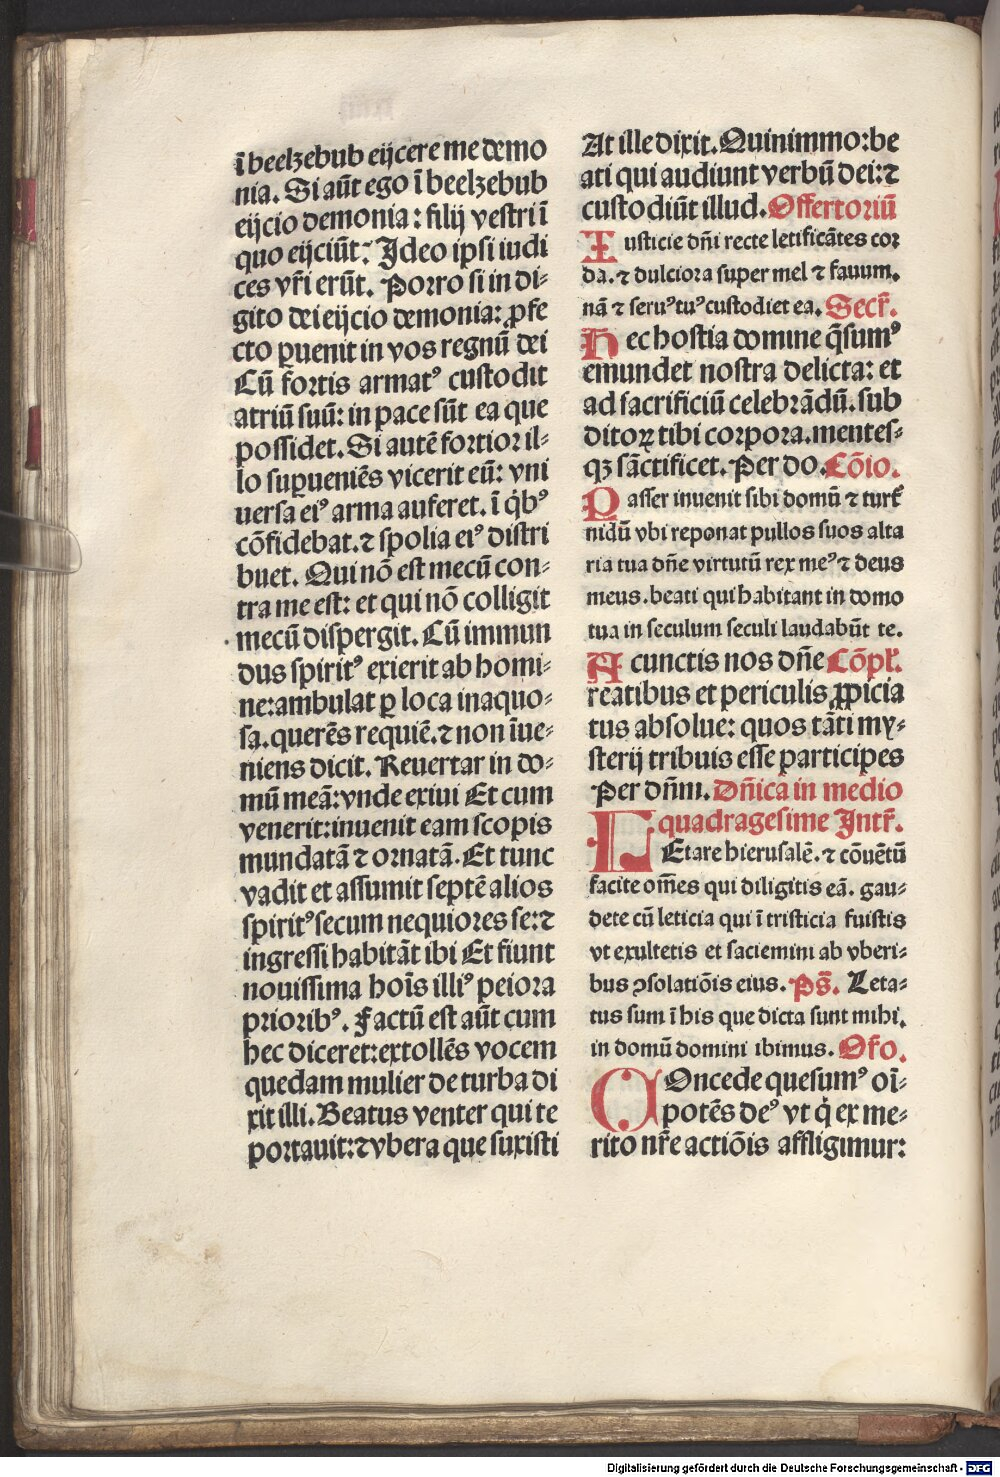 ī beelzebub eijcere me demo
nia. Si aūt ego ī beelzebub
eijcio demonia: filij vestri ī
quo eijciūt: Ideo ipsi iudi
ces vr̄i erūt. Porro si in di-
gito dei eijcio demonia: ꝓfe
cto ꝑuenit in vos regnū dei
Cū fortis armatꝰ custodit
atriū suū: in pace sūt ea que
possidet. Si autē fortior il-
lo supueniēs vicerit eū: vni
uersa eiꝰ arma auferet. ī q̇bꝰ
cōfidebat. ⁊ spolia eiꝰ distri
buet. Qui nō est mecū con-
tra me est: et qui nō colligit
mecū dispergit. Cū immun
dus spiritꝰ exierit ab homi-
ne: ambulat ꝑ loca inaquo-
sa. querēs requiē. ⁊ non īue-
niens dicit. Reuertar in do-
mū meā: vnde exiui Et cum
venerit: inuenit eam scopis
mundatā ⁊ ornatā. Et tunc
vadit et assumit septē alios
spiritꝰ secum nequiores se: ⁊
ingressi habitāt ibi Et fiunt
nouissima hoīs illiꝰ peiora
prioribꝰ. Factū est aūt cum
hec diceret: extollēs vocem
quedam mulier de turba di
xit illi. Beatus venter qui te
portauit: ⁊ vbera que suxisti
At ille dixit. Quinimmo: be
ati qui audiunt verbū dei: ⁊
custodiūt illud. Offertoriū
Iusticie dn̄i recte letificātes cor
da. ⁊ dulciora super mel ⁊ fauum.
nā ⁊ seruꝰ tuꝰ custodiet ea. Secr̄.
Hec hostia domine q̄sumꝰ
emundet nostra delicta: et
ad sacrificiū celebrādū. sub
ditoꝝ tibi corpora. mentes-
qꝫ sāctificet. Per do. Cōio.
Passer inuenit sibi domū ⁊ turt̄
nidū vbi reponat pullos suos alta
ria tua dn̄e virtutū rex meꝰ ⁊ deus
meus. beati qui habitant in domo
tua in seculum seculi laudabūt te.
A cunctis nos dn̄e Cōpl̄.
reatibus et periculis ꝓpicia
tus absolue: quos tāti my-
sterij tribuis esse participes
Per dn̄m. Dn̄ica in medio
quadragesime Intr̄.
LEtare hierusalē. ⁊ cōuētū
facite om̄es qui diligitis eā. gau-
dete cū leticia qui ī tristicia fuistis
vt exultetis et saciemini ab vberi-
bus ꝯsolatiōis eius. Ps̄. Leta-
tus sum ī his que dicta sunt mihi.
in domū domini ibimus. Or̄o.
COncede quesumꝰ oī-
potēs deꝰ vt q̇ ex me-
rito nr̄e actiōis affligimur:
Digitalisierung gefördert durch die Deutsche Forschungsgemeinschaft - DFG